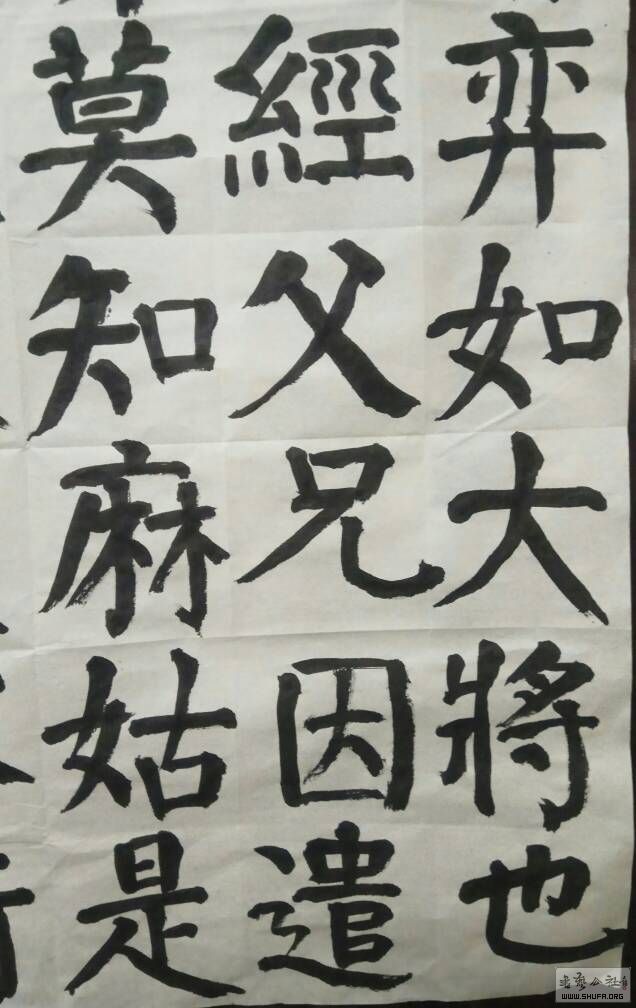 弈如大將也
經父兄因遣
莫知麻姑是
WWW.SHUFA.ORG